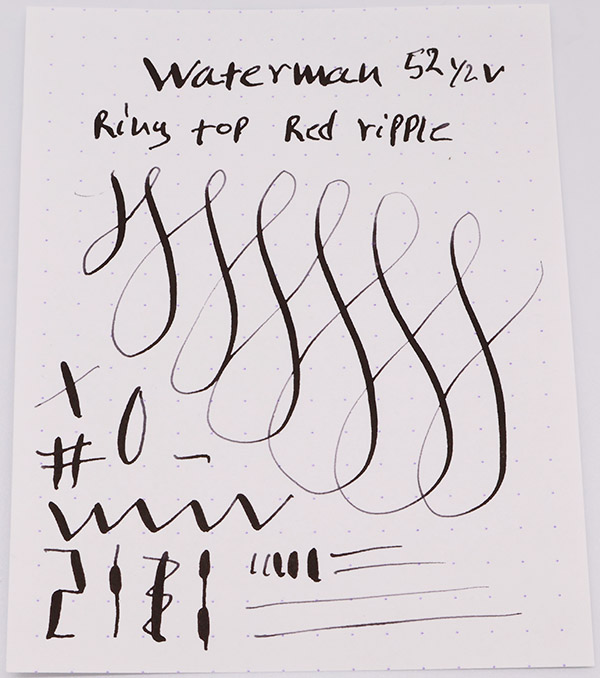 Waterman 52 1/2 V
Ring top Red ripple